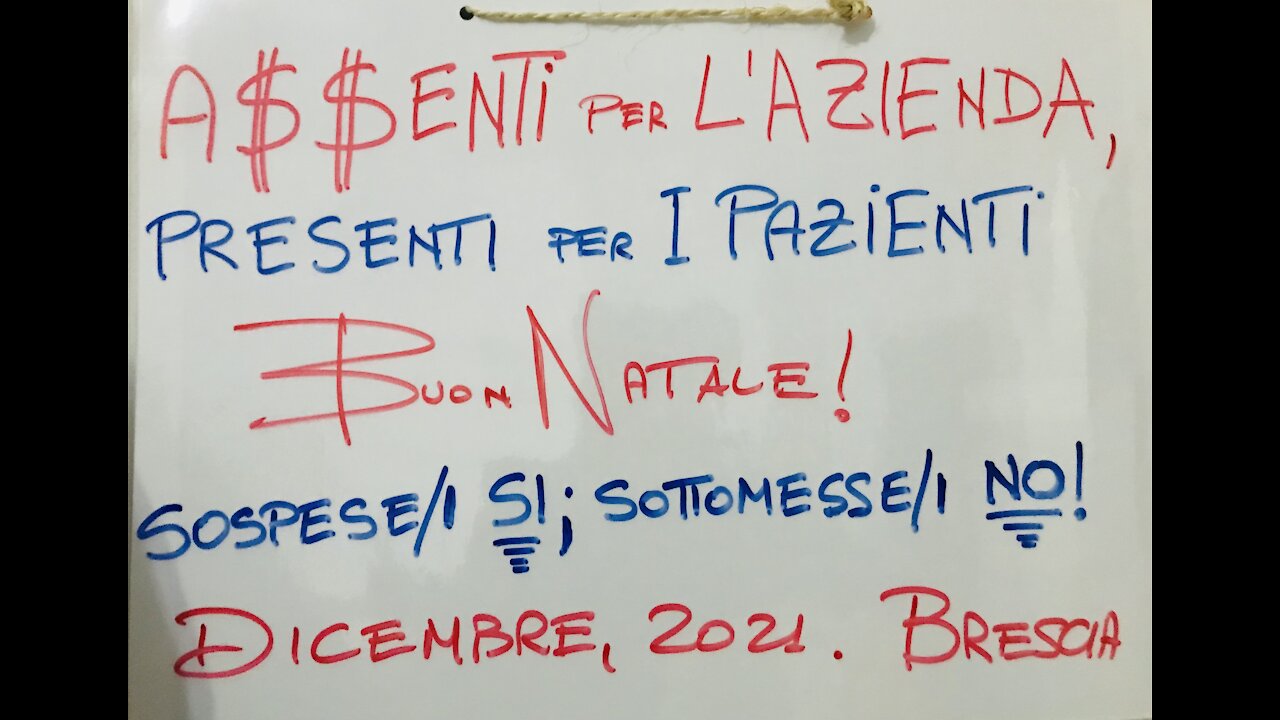 A$$ENTi PER L'AZIENDA,
PRESENTI PER I PAZiENTi
BUON NATALE!
SOSPESE/I SI; SOTTOMESSE/I NO!
DICEMBRE, 2021. BRESCIA